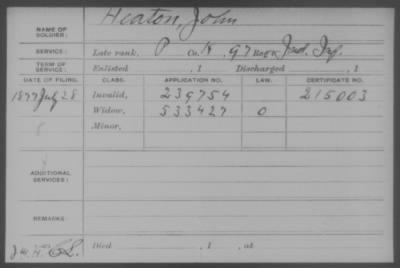 Heaton, John
NAME OF SOLDIER:
SERVICE: Late rank, P Co. K, 97 Reg't Ind. Inf.
TERM OF SERVICE: Enlisted , 1 Discharged , 1
DATE OF FILING. CLASS. APPLICATION NO. LAW. CERTIFICATE NO.
1877 July 28 Invalid, 239754 215003
Widow, 533427 O
Minor,
ADDITIONAL SERVICES:
REMARKS:
Died , 1 , at